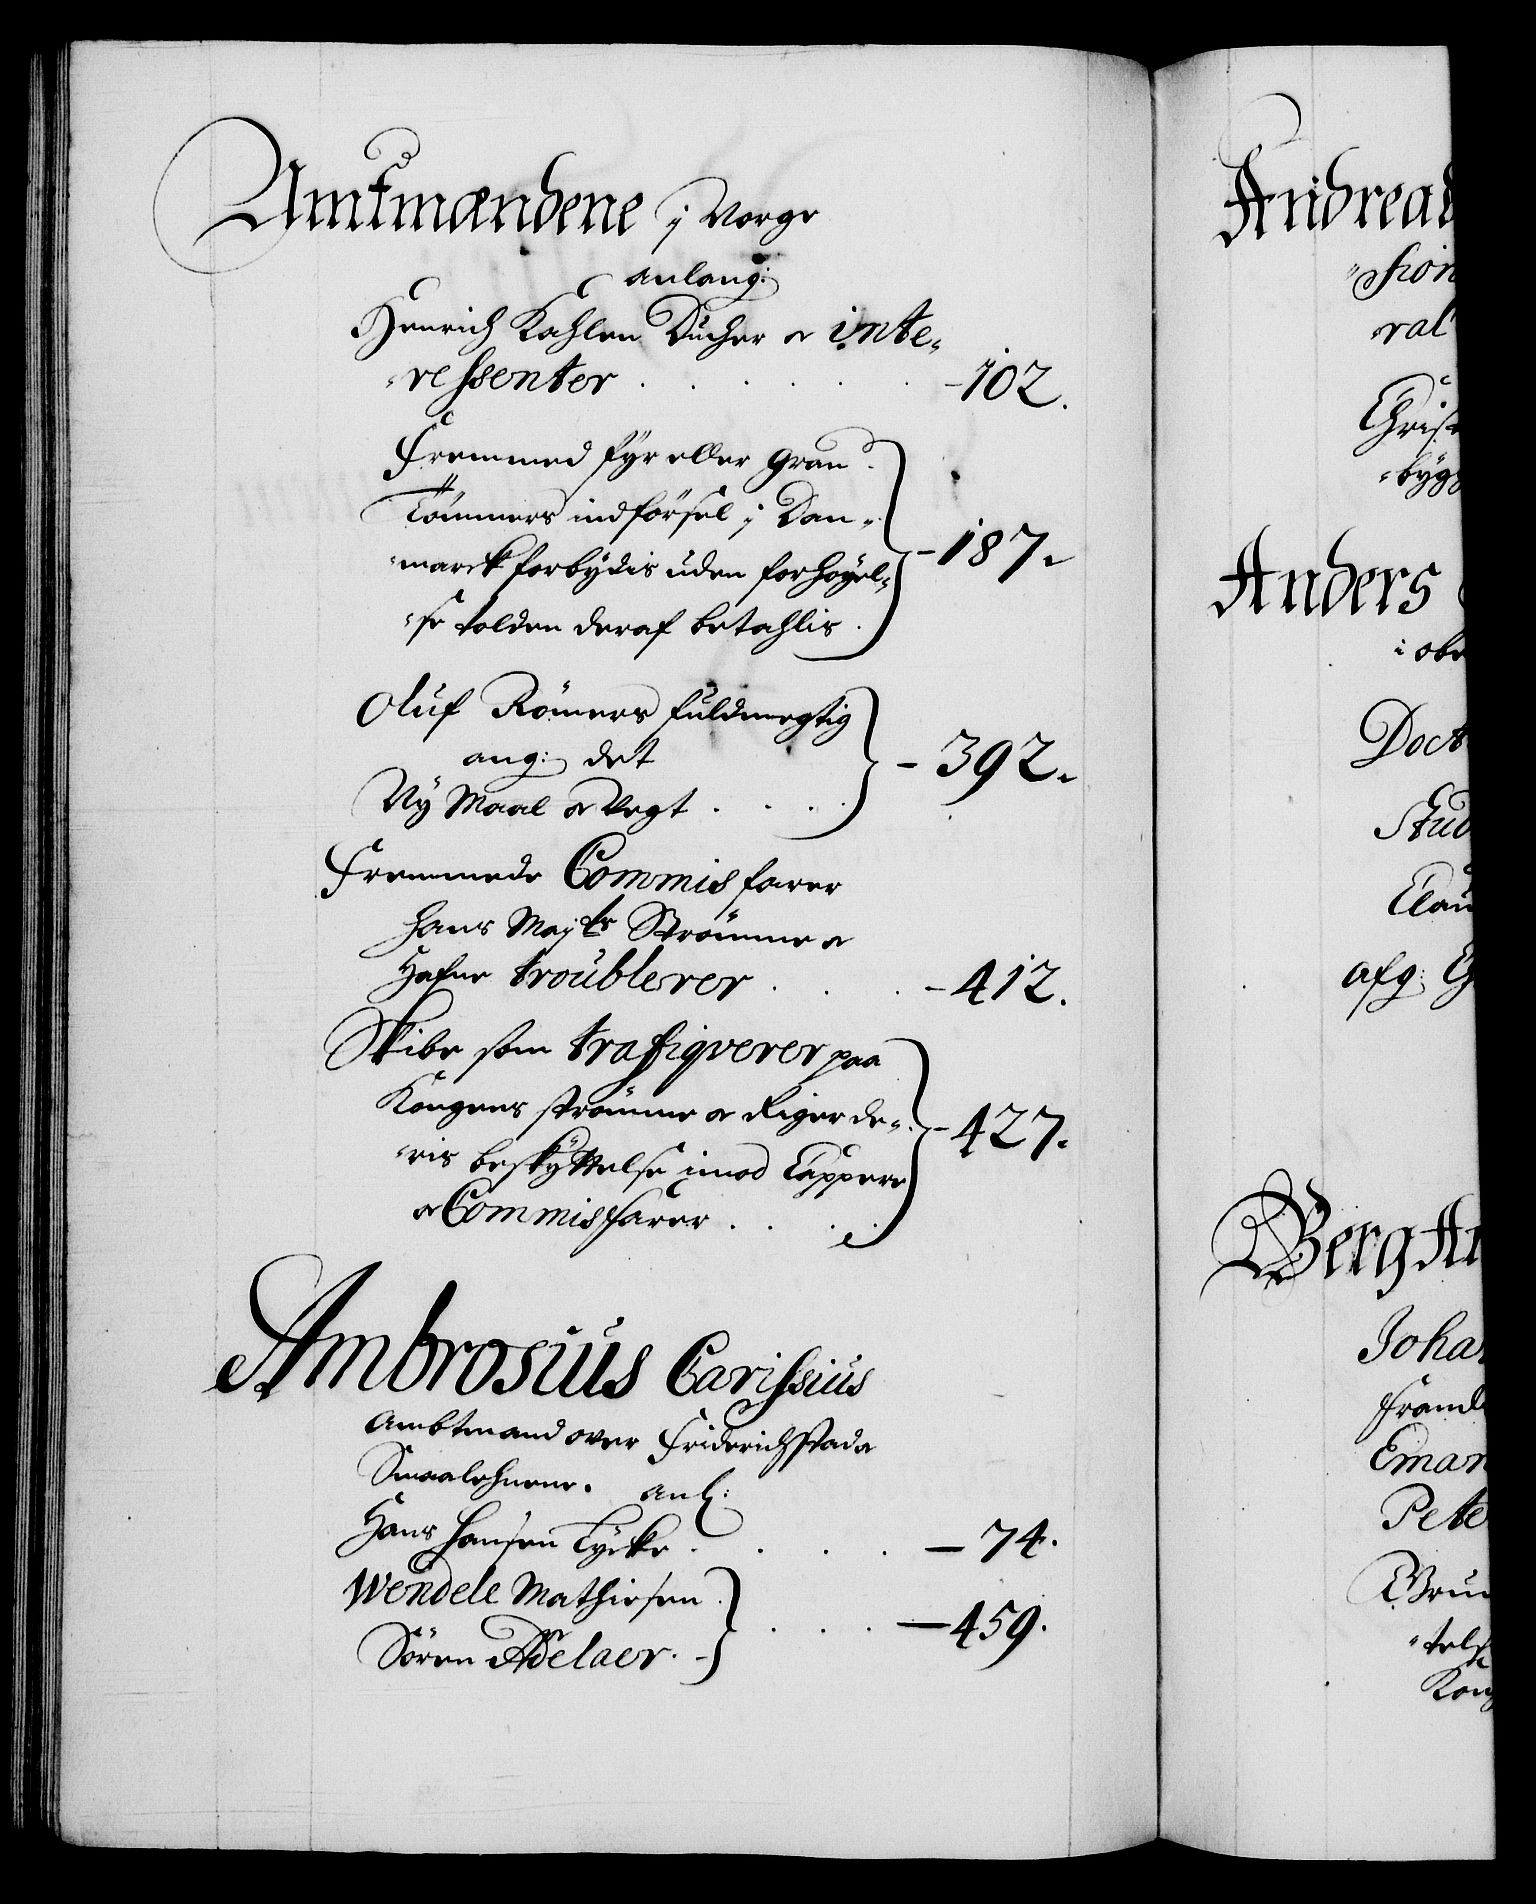 Amtmændene j Norge
anlang:
Henrich Kahlen Ducher & inte„
„ressenter . . . . . . -102.
Fremmed fyr eller gran
Tömmers indförsel j Dan„
„marck forbydis uden forhöyel„
„se tolden deraf betahlis . -187.
Oluf Römers fuldmegtig
ang: det
Ny Maal & Vegt . . . . -392.
Fremmede Commis farer
Hans Maj:ts Strömme &
Hafne troublerer . . . -412.
Skibe som trafiqverer paa
Kongens strömme & Riger de„
„ris beskyttelse imod Cappere
& Commisfarer . . . . -427.
Ambrosius Carissius
Ambtmand over Friderichstad &
Smaalehnene. anl:
Hans Hansen Tycke . . . . -74.
Wendele Mathiesen .
Sören Adelaer. - . . . -459.
Andreas
ral
Chris
„byg
Anders
i obe
Doct
Stud
Clau
afg: Ch
Berg A
Johan
frand
Eman
Pete
Brun
„tels
Kong